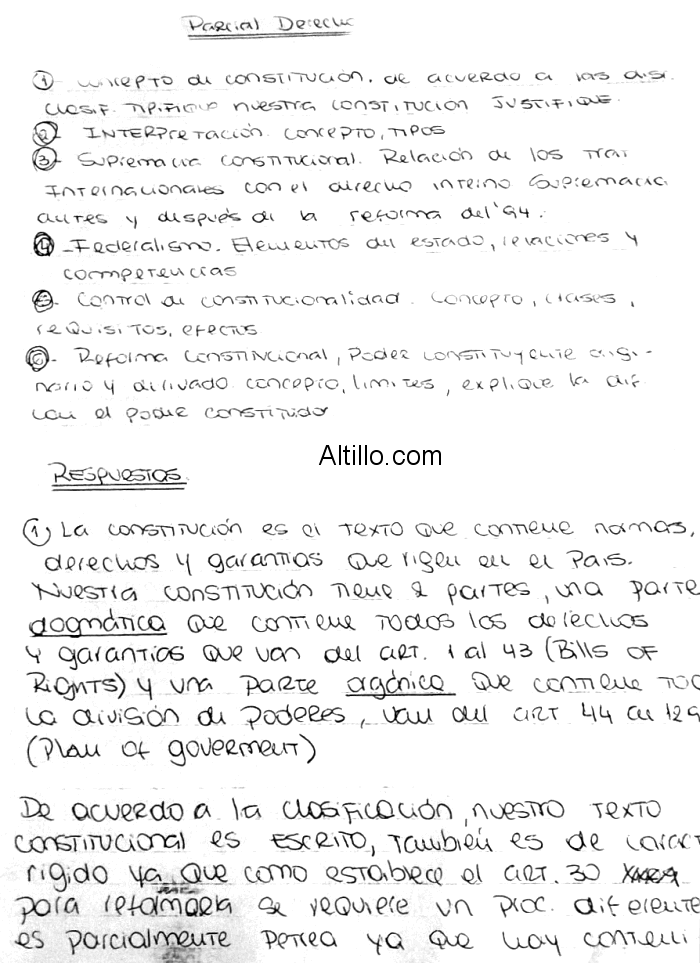 Parcial Derecho
① - concepto de constitución. de acuerdo a las
clasif. tipifique nuestra constitución JUSTIFIQUE.
② - INTERPretación. concepto, TIPOS
③ - Supremacia constitucional. Relación de los Trat
Internacionales con el derecho interno Supremacia
antes y después de la reforma del '94.
④ - Federalismo. Elementos del estado, relaciones y
competencias
⑤ - Control de constitucionalidad. Concepto, clases,
requisitos, efectos
⑥ - Reforma constitucional, Poder constituyente origi-
nario y derivado. concepto, limites, explique la dif
con el poder constituido
Altillo.com
RESPUESTAS.
① La constitución es el texto que contiene normas,
derechos y garantias que rigen en el Pais.
Nuestra constitución tiene 2 partes, una parte
dogmática que contiene todos los derechos
y garantias que van del art. 1 al 43 (Bills of
Rights) y una parte orgánica que contiene tod
la división de poderes, van del art 44 al 129
(Plan of goverment)
De acuerdo a la clasificación, nuestro texto
constitucional es ESCRITO, también es de caract
rigido ya que como establece el art. 30
para reformarla se requiere un proc. diferente
es parcialmente petrea ya que hay conteni